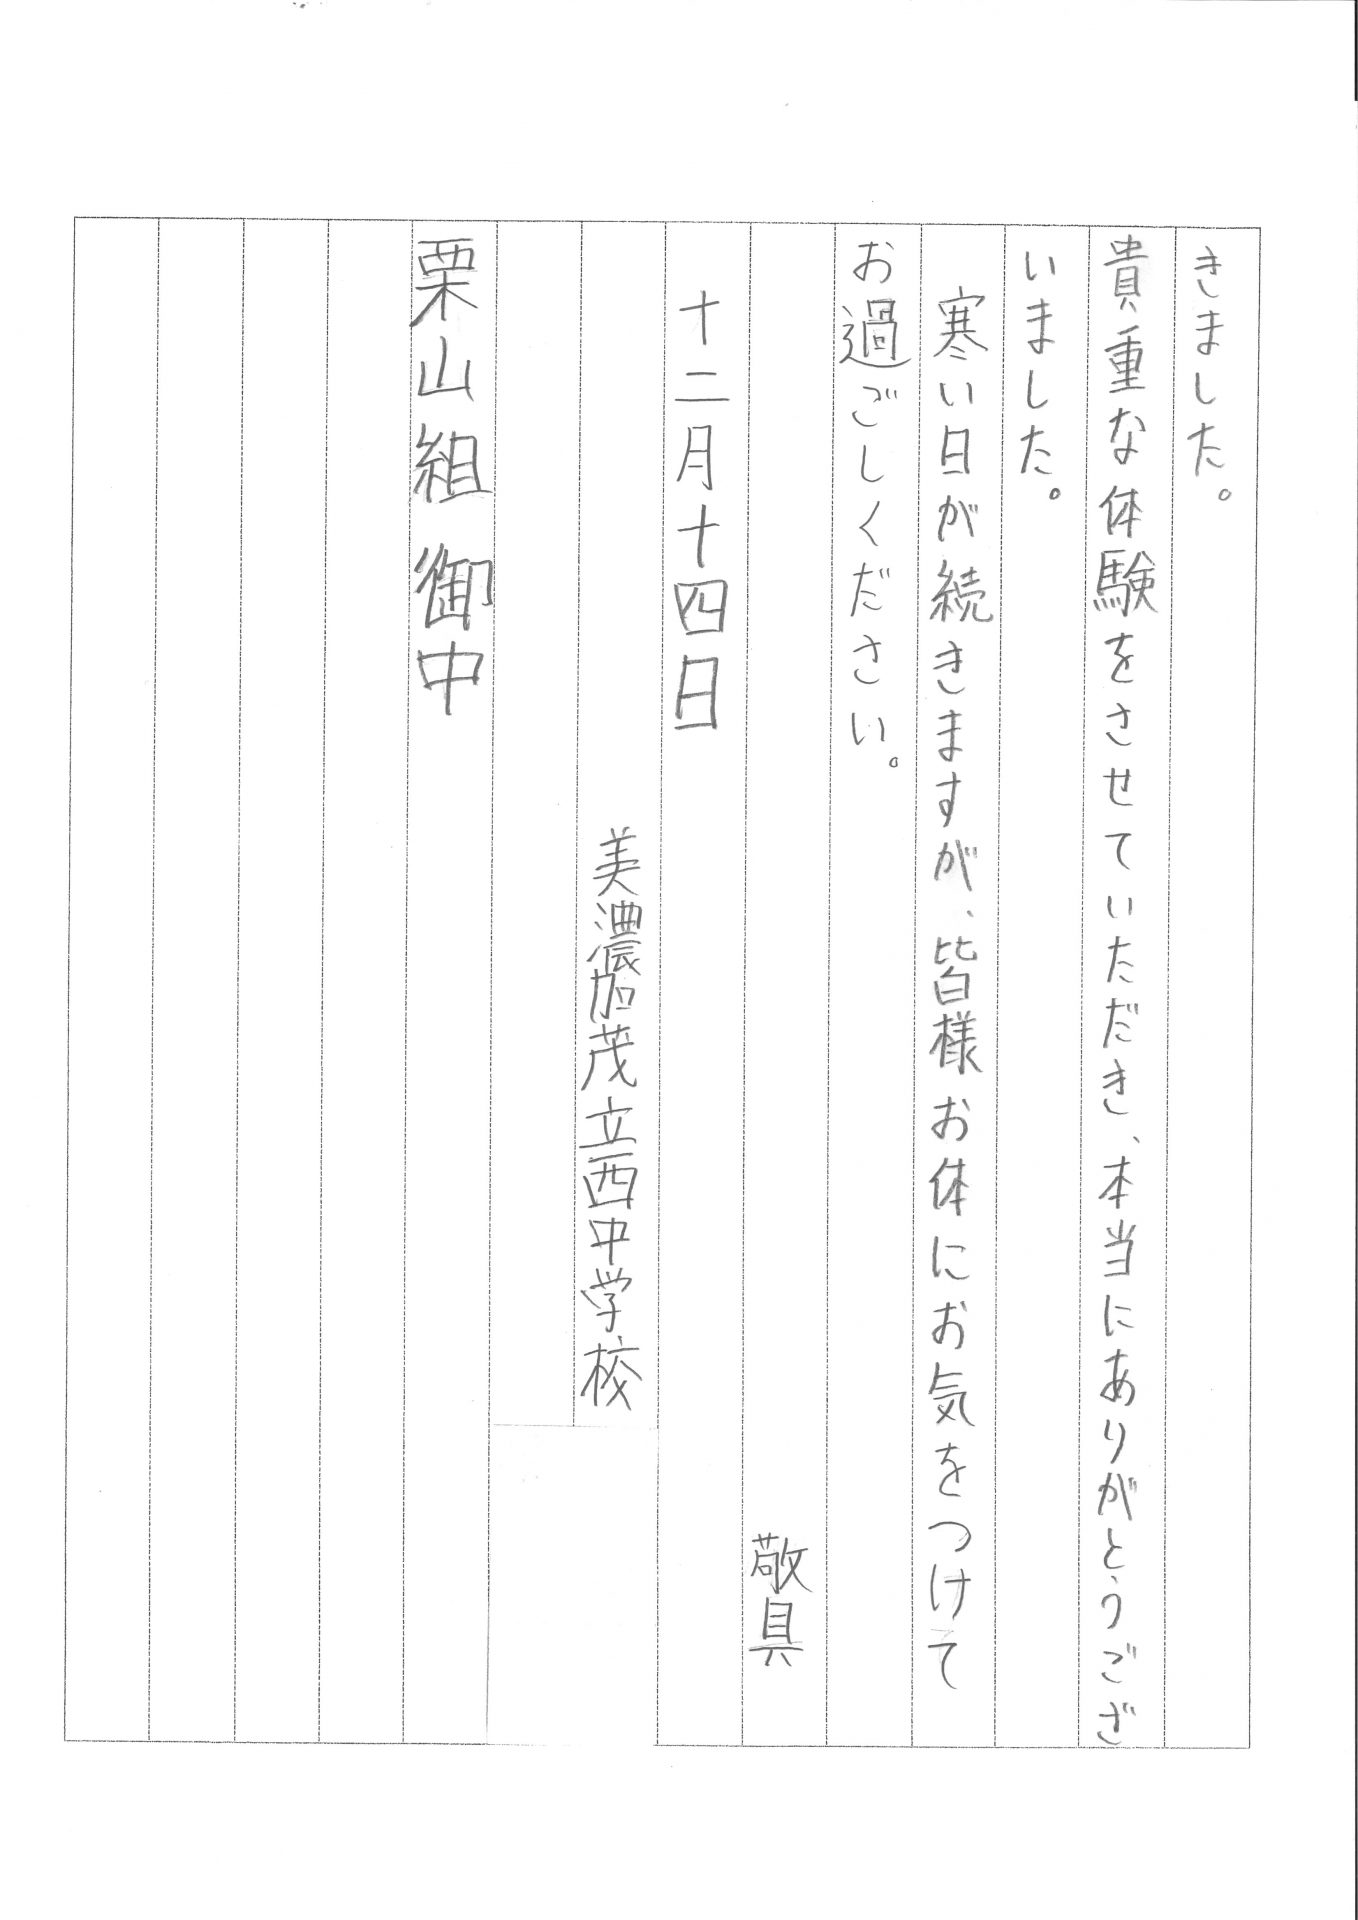 きました。
貴重な体験をさせていただき、本当にありがとうござ
いました。
寒い日が続きますが、皆様お体にお気をつけて
お過ごしください。
敬具
十二月十四日
美濃加茂立西中学校
栗山組御中